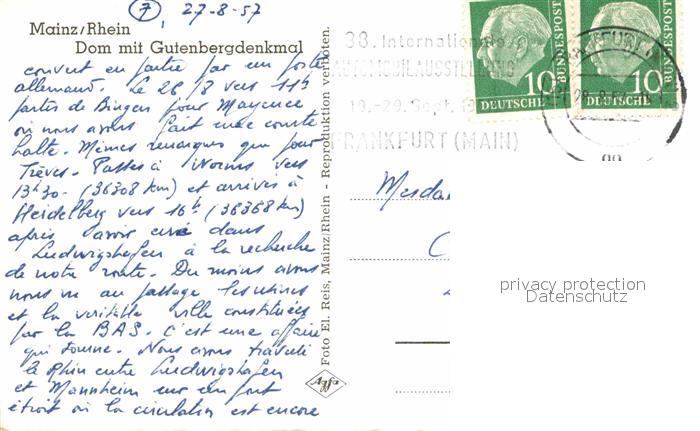 7
27-8-57
Mainz/Rhein
Dom mit Gutenbergdenkmal
couvert en partie par un poste
allemand. Le 26/8 vers 11h
partis de Bingen pour Mayence
où nous avons fait une courte
halte. Mêmes remarques que pour
Trèves. Passés à Worms vers
13h30. (36308 km) et arrivés à
Heidelberg vers 16h (36368 km)
après avoir erré dans
Ludwigshafen à la recherche
de notre route. Du moins avons
nous vu au passage les usines
et la véritable ville constituées
par la BAS. C'est une affaire
qui tourne. Nous avons traversé
le Rhin entre Ludwigshafen
et Mannheim sur un pont
étroit où la circulation est encore
Foto El. Reis, Mainz/Rhein - Reproduktion verboten.
Agfa
38. Internationale
AUTOMOBILAUSSTELLUNG
19.-29. Sept.
FRANKFURT (MAIN)
10
DEUTSCHE
BUNDESPOST
10
DEUTSCHE
BUNDESPOST
Mesda
privacy protection
Datenschutz